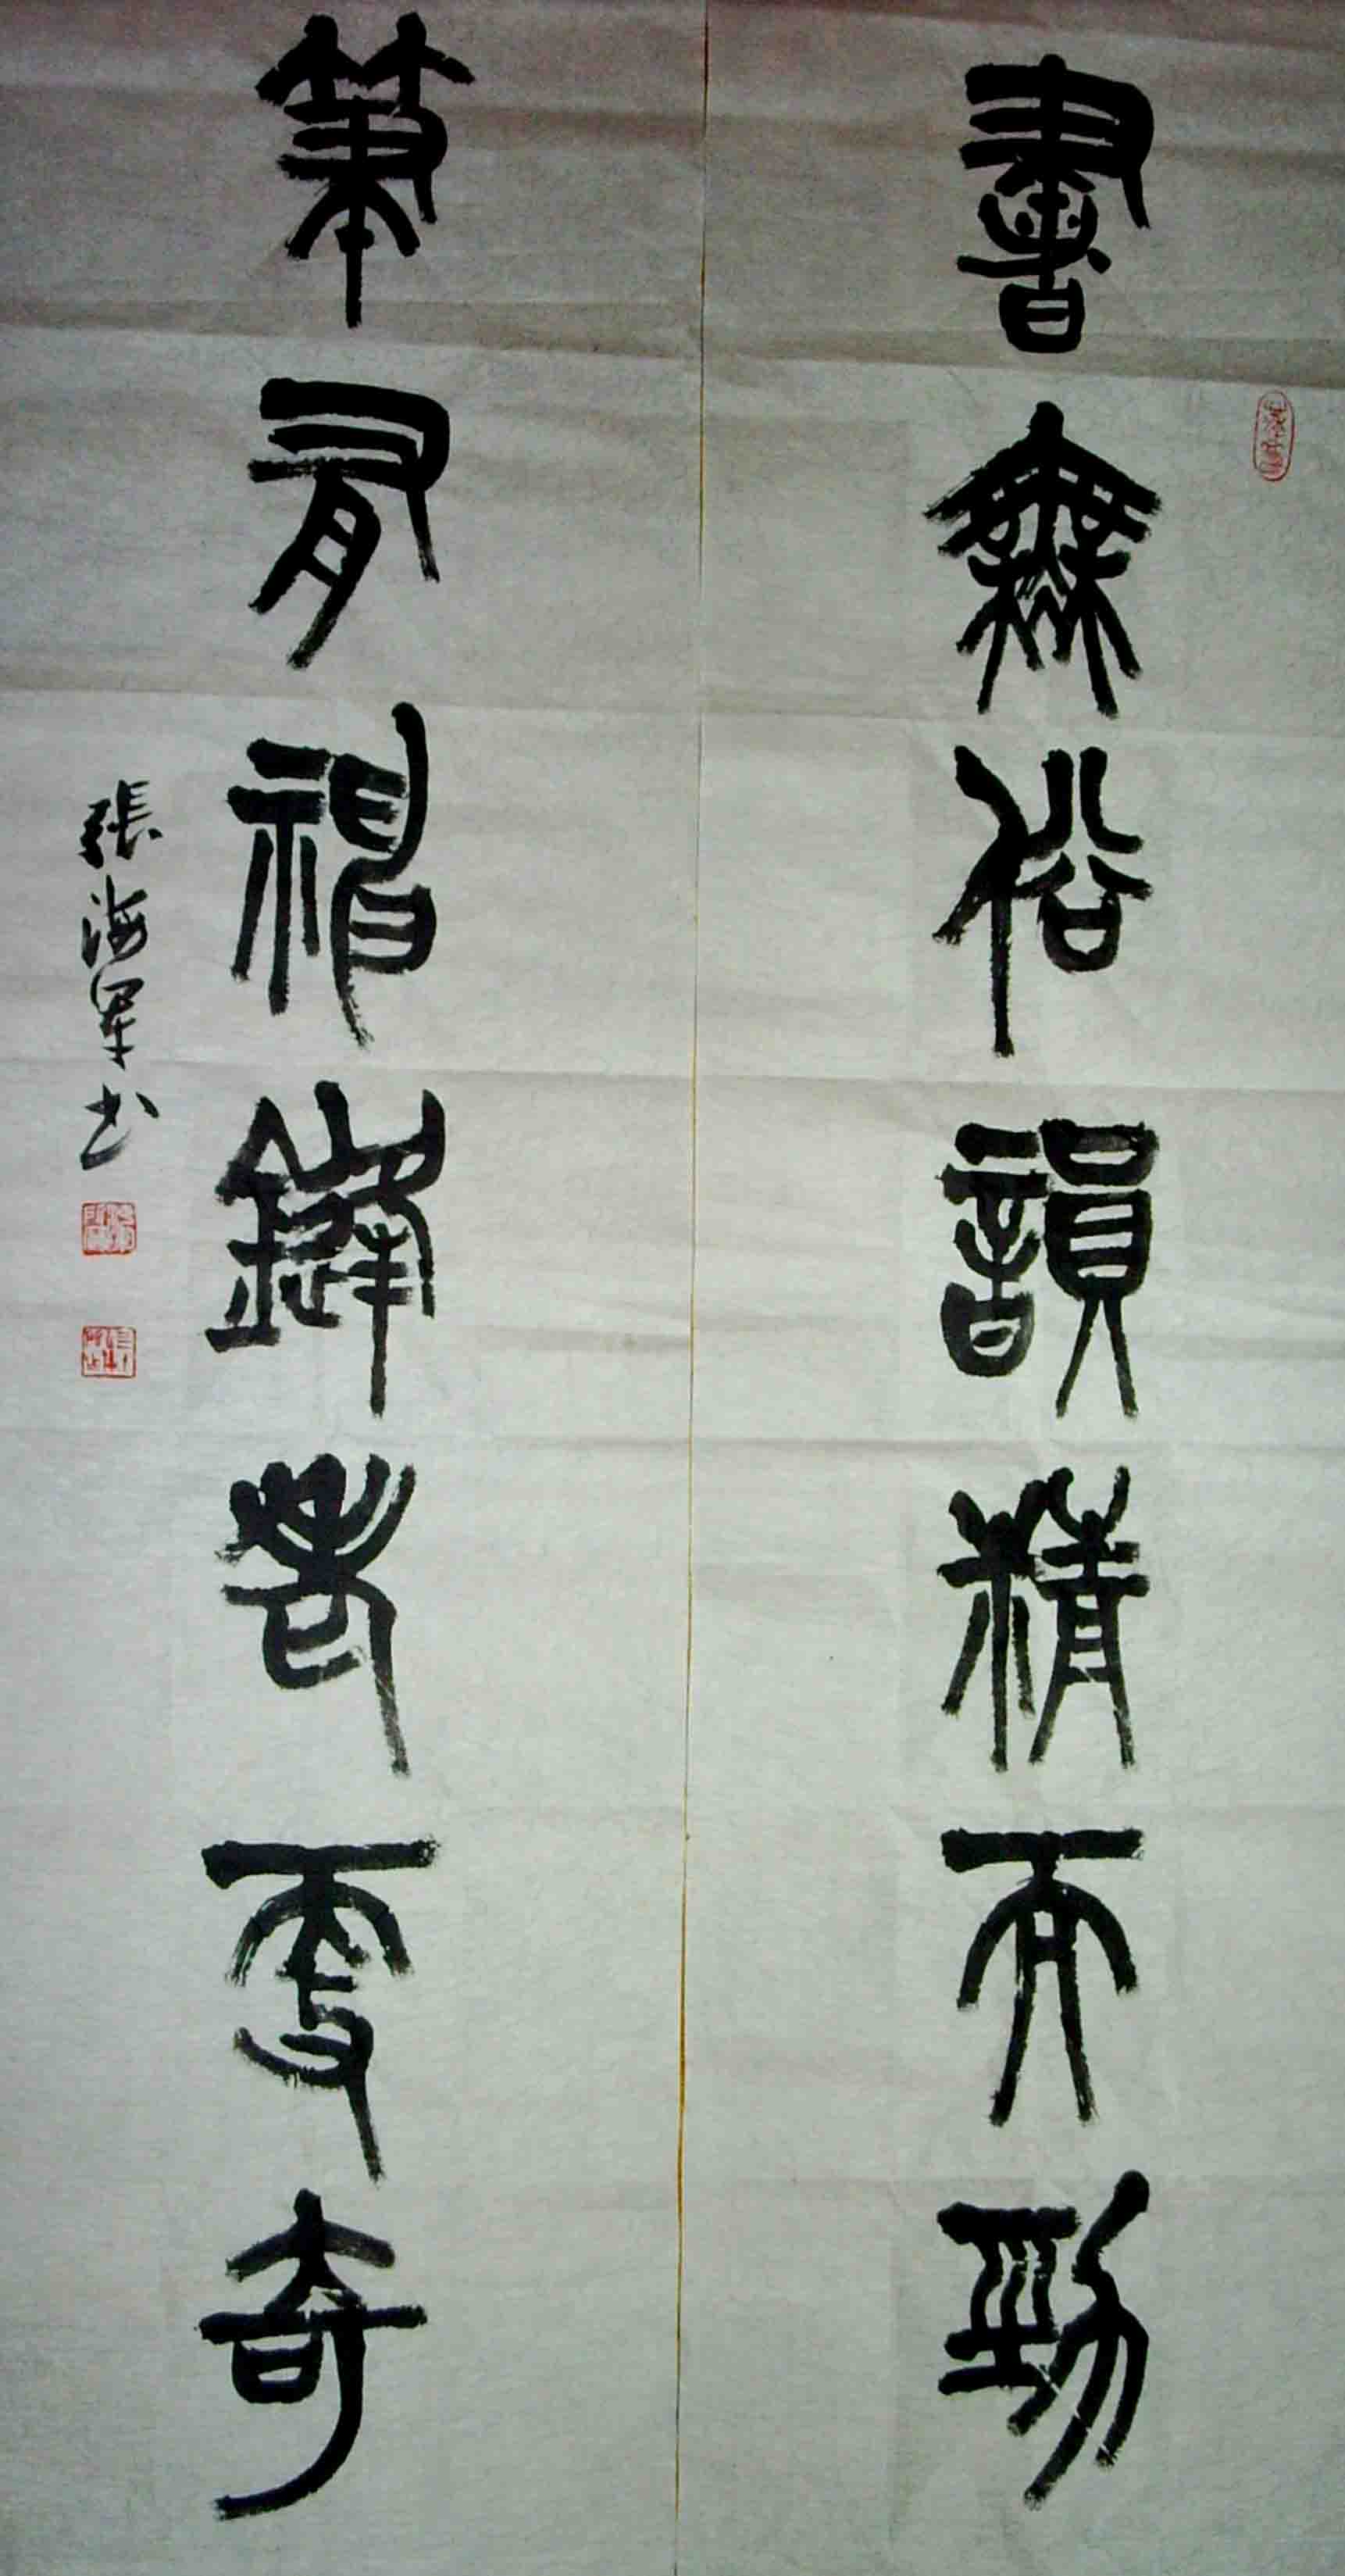 書無俗韻精而勁
筆有神鋒老更奇
張海軍书